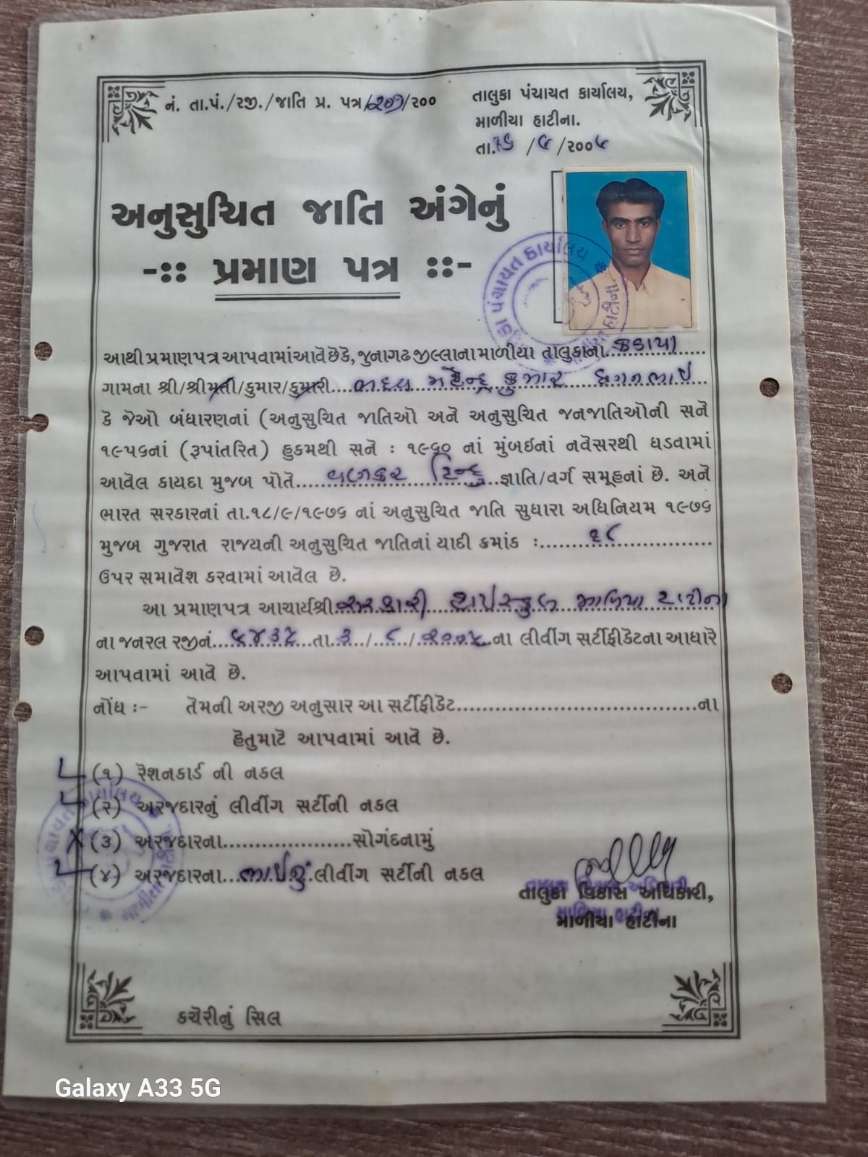 નં. તા.પં./રજી./જાતિ પ્ર. પત્ર/૨૦૭/૨૦૦
તાલુકા પંચાયત કાર્યાલય,
માળીયા હાટીના.
તા. /૯/૨૦૦૫
અનુસુચિત જાતિ અંગેનું
-:: પ્રમાણ પત્ર ::-
આથી પ્રમાણપત્ર આપવામાં આવે છે કે, જુનાગઢ જીલ્લાના માળીયા તાલુકાના..કડાયા....
ગામના શ્રી/શ્રીમતી/કુમાર/કુમારી.... મહેન્દ્ર કુમાર છગનભાઈ..
કે જેઓ બંધારણનાં (અનુસુચિત જાતિઓ અને અનુસુચિત જનજાતિઓની સને
૧૯૫૬નાં (રૂપાંતરિત) હુકમથી સને : ૧૯૬૦ નાં મુંબઈનાં નવેસરથી ઘડવામાં
આવેલ કાયદા મુજબ પોતે......વણકર હિન્દુ...જ્ઞાતિ/વર્ગ સમૂહનાં છે. અને
ભારત સરકારનાં તા.૧૮/૯/૧૯૭૬ નાં અનુસુચિત જાતિ સુધારા અધિનિયમ ૧૯૭૬
મુજબ ગુજરાત રાજ્યની અનુસુચિત જાતિનાં યાદી ક્રમાંક :.................
ઉપર સમાવેશ કરવામાં આવેલ છે.
આ પ્રમાણપત્ર આચાર્યશ્રી સરકારી હાઈસ્કુલ માળિયા હાટીના
ના જનરલ રજીનં. તા.૩./..૮./.૨૦૦૫..ના લીવીંગ સર્ટીફીડેટના આધારે
આપવામાં આવે છે.
નોંધ :- તેમની અરજી અનુસાર આ સર્ટીફીડેટ....................................ના
હેતુમાટે આપવામાં આવે છે.
(૧) રેશનકાર્ડ ની નકલ
(૨) અરજદારનું લીવીંગ સર્ટીની નકલ
(૩) અરજદારના....................સોગંદનામું
(૪) અરજદારના...ભાઈનું.લીવીંગ સર્ટીની નકલ
તાલુકા વિકાસ અધિકારી,
માળીયા હાટીના
કચેરીનું સિલ
Galaxy A33 5G